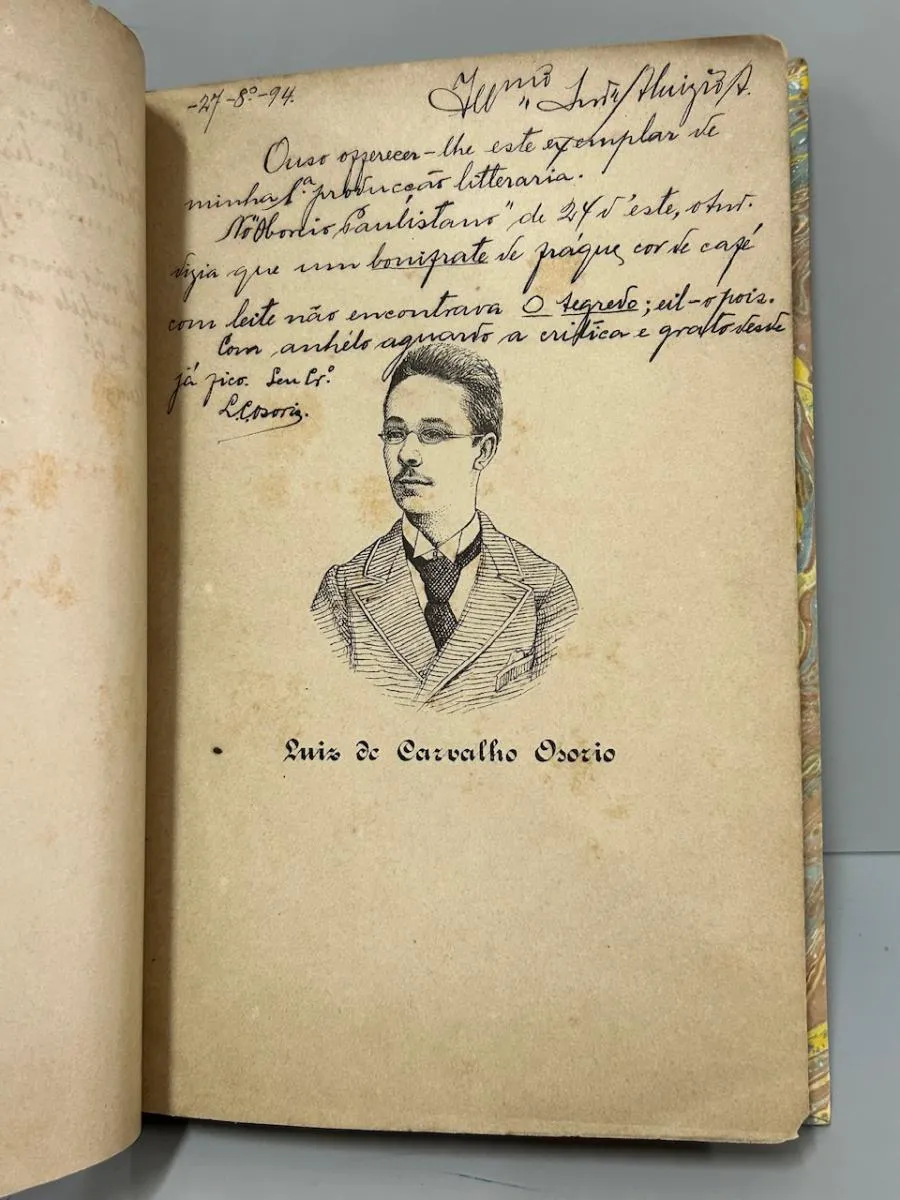 -27-8º-94.
Illmo
Ouso offerecer-lhe este exemplar de
minha 1ª producção litteraria.
Paulistano" de 24 d'este,
dizia que um bonifrate de fráque cor de café
com leite não encontrava O Segredo; eil-o pois.
Com anhélo aguardo a critica e grato desde
já fico. Seu Crº
L.C.Osorio.
Luiz de Carvalho Osorio